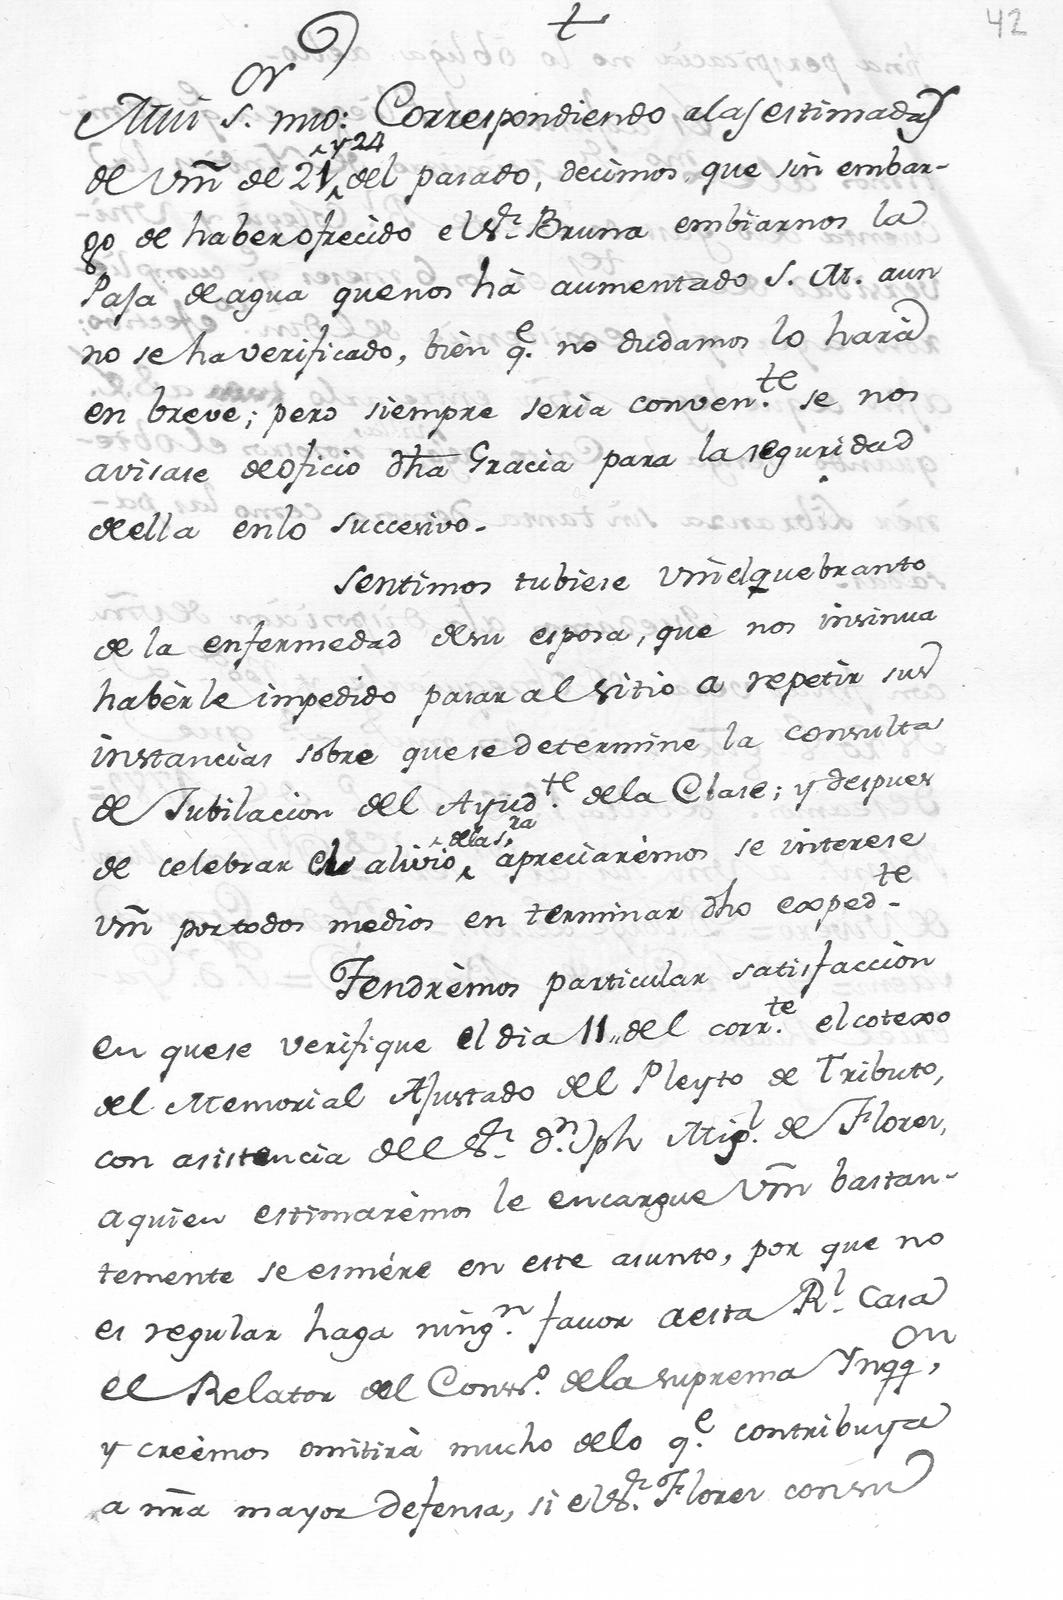 42
Mui S.or mio: Correspondiendo a las estimadas
de Vm̃ de 21, y 24 del pasado, decimos, que sin embar-
go de haber ofrecido el S.r Bruna embiarnos la
Paja de agua que nos hà aumentado S. M. aun
no se ha verificado, bien q.e no dudamos lo harà
en breve; pero siempre seria conven.te se nos
avisase de oficio dh̃a Gracia para la seguridad
de ella en lo succesivo.
Sentimos tubiese Vm̃ el quebranto
de la enfermedad de su esposa, que nos insinua
habèrle impedido pasar al sitio a repetir sus
instancias sobre que se determine la consulta
de Jubilacion del Ayud.te de la Clase; y despues
de celebrar el alivio de la S.ra apreciarèmos se interese
Vm̃ por todos medios en terminar dh̃o exped.te
Tendrèmos particular satisfacciòn
en que se verifique el dia 11,, del corr.te el cotexo
del Memorial Ajustado del Pleyto de Tributo,
con asistencia del S.r d.n Jph Mig.l de Flores,
a quien estimarèmos le encargue Vm̃ bastan-
temente se esmére en este asunto, por que no
es regular haga ning.n favor a esta R.l Casa
el Relator del Cons.o de la suprema Ynqq.on,
y creèmos omitirà mucho de lo q.e contribuya
a ñra mayor defensa, si el S.r Flores con su